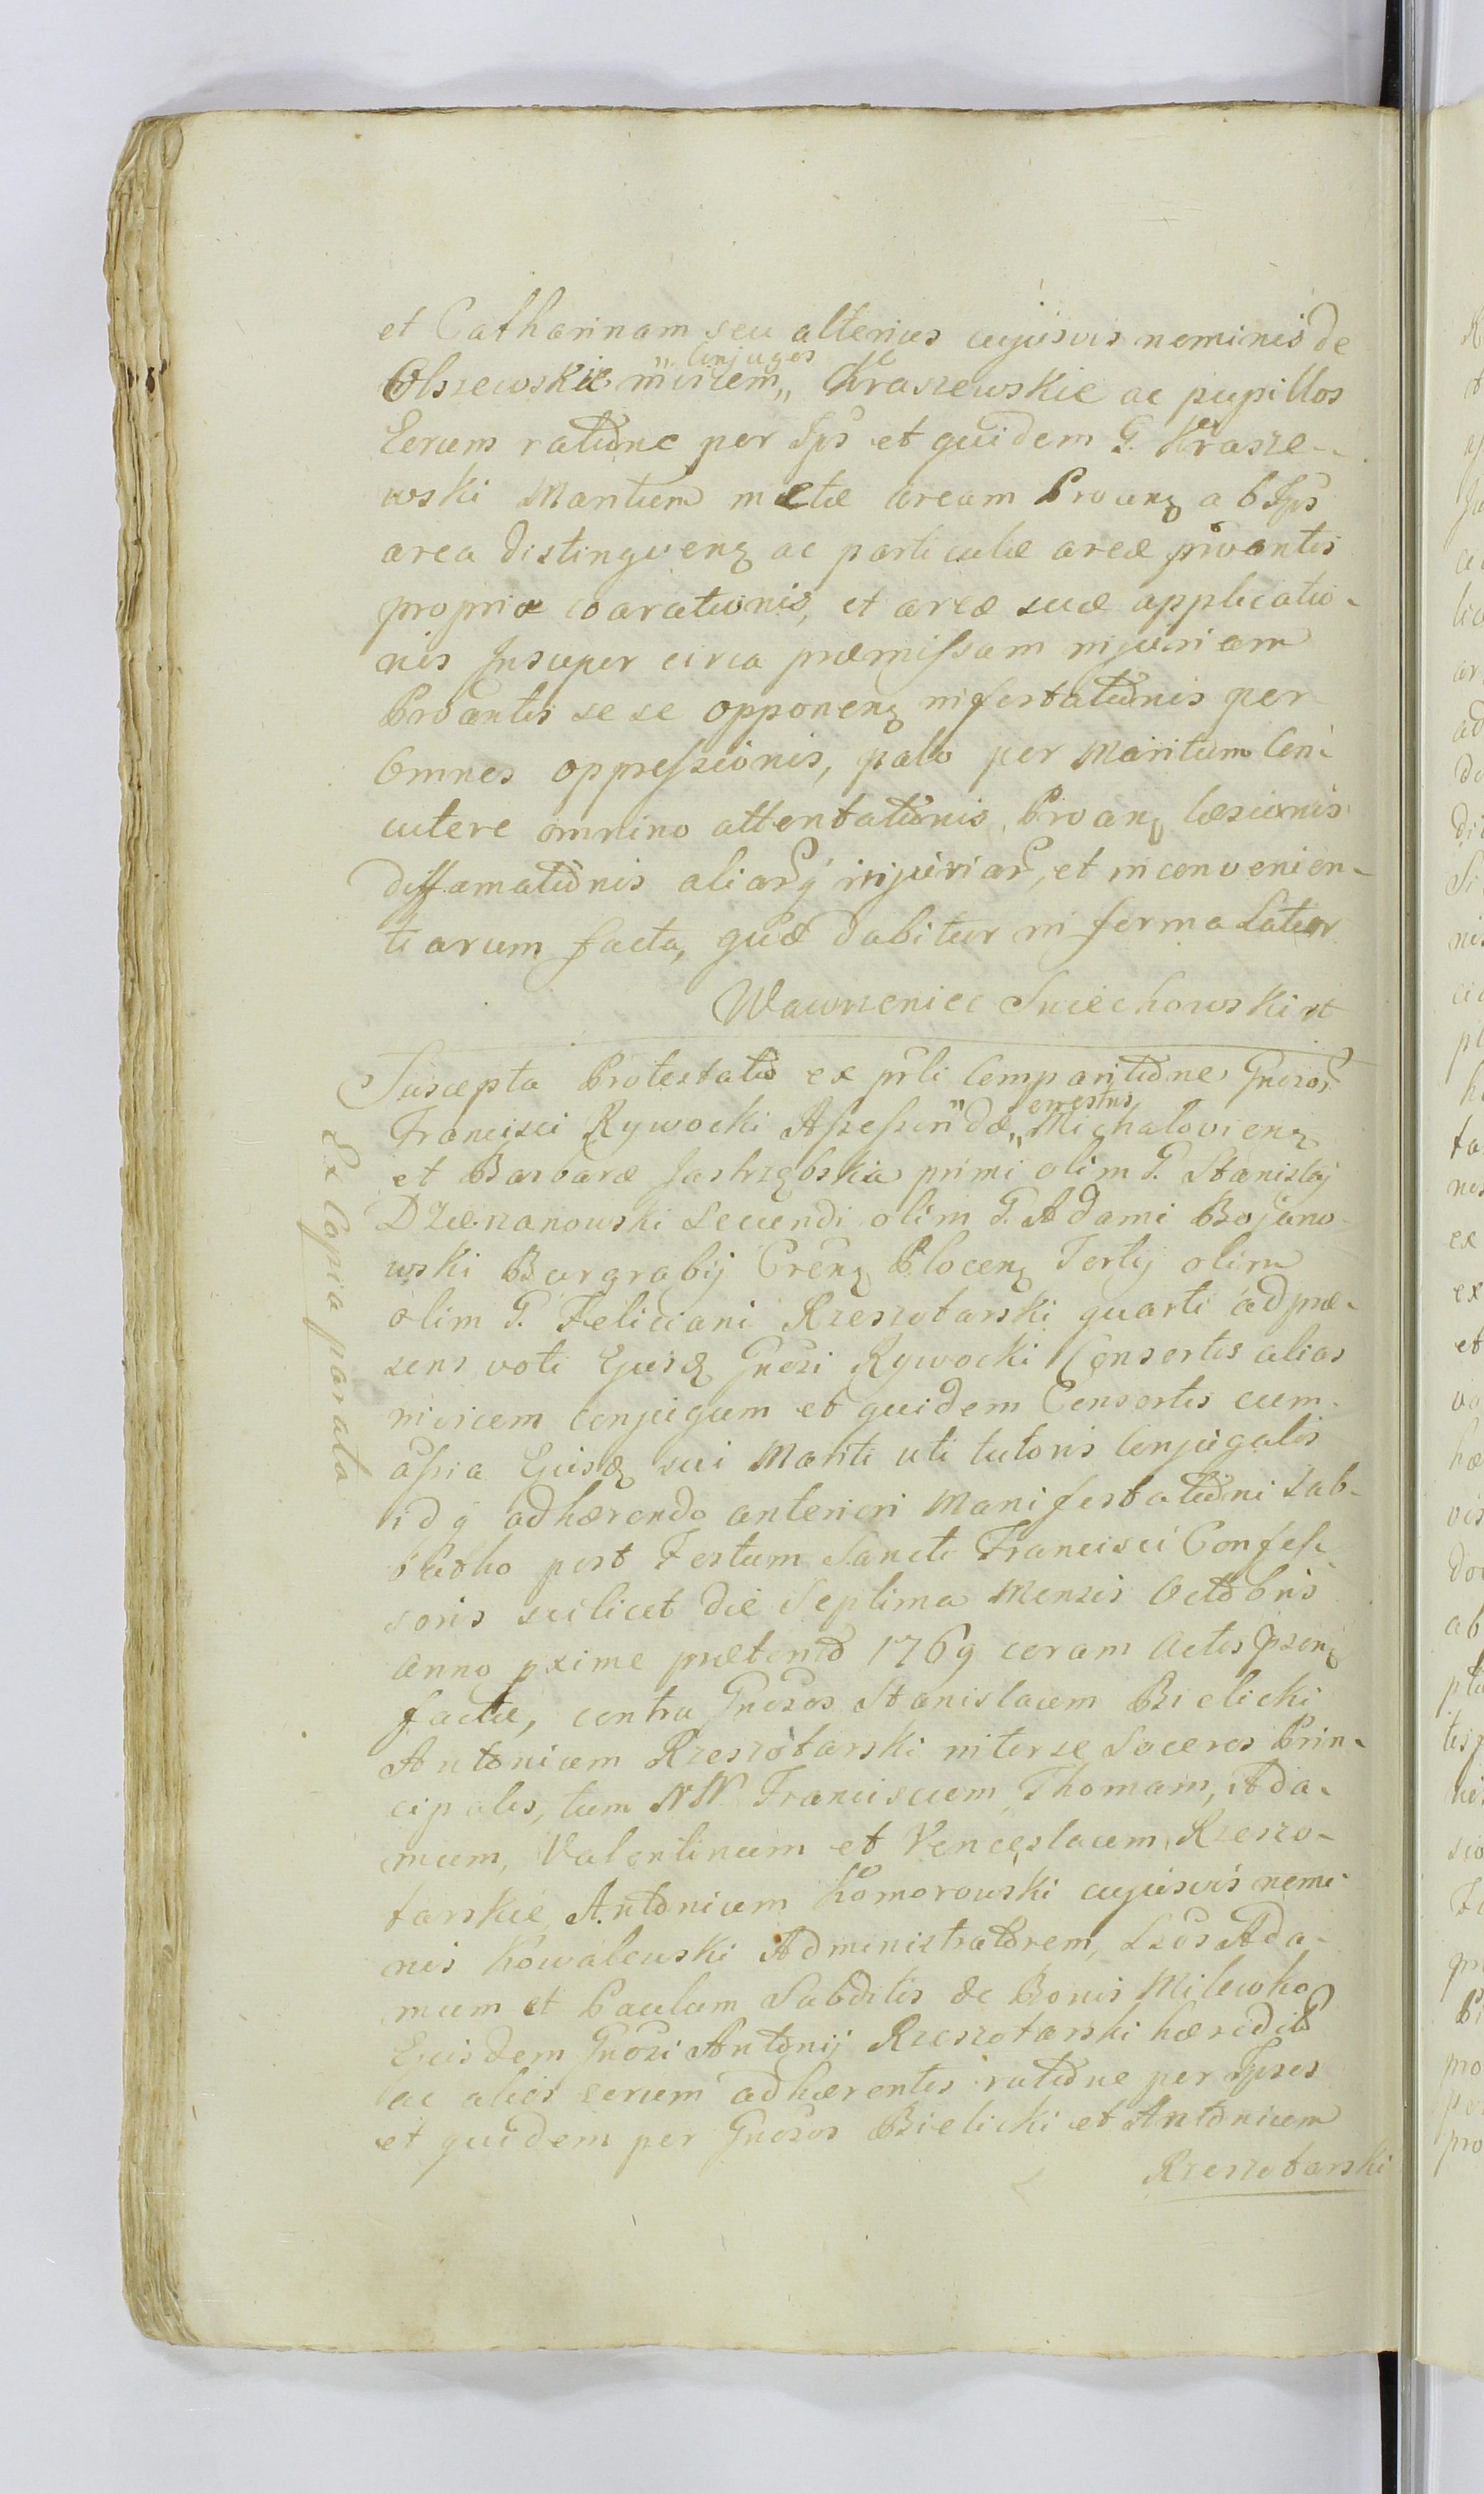 et Catharinam seu alterius cujusvis nominis de
Olszewskie invicem „ Conjuges „ Kraszewskie ac pupillos
Eorum ratione per Ips et quidem G. Krasze-
wski Maritum metæ aream Proanꝫ ab Ips
area distingvenꝫ ac particulæ areæ proantis
propriæ coarationis, et areæ suæ applicatio-
nis Insuper circa præmissam injuriam
Proantis sese opponenꝫ infestationis per
Omnes oppressionis, palo per Maritum Con-
cutere omnino attentationis, Proanꝫ læsionis
diffamationis aliarq injuriar, et inconvenien-
tiarum facta, quæ dabitur in forma Latior
Wawrzeniec Sniechowski
Suscepta Protestatio ex prli Comparitione Gnosor
Francisci Rywocki „ errestris „ Michaloviensꝫ
et Barbaræ Jastrzębskie primi olim G. Stanislaj
Dzierzanowski Secundi olim G. Adami Bojano-
wski Burgrabij Crenꝫ Plocenꝫ Tertij olim
olim G. Feliciani Rzeszotarski quarti ad præ-
sens voti Ejusd Gnosi Rywocki Consortis alias
invicem conjugum et quidem Consortis cum
assia Ejusd sui Mariti uti tutoris Conjugalis
idq adhærendo anteriori Manifestationi Sab-
batho post Festum Sancti Francisci Confes-
soris scilicet die Septima Mensis Octobris
Anno pxime præterito 1769 coram Actis Psenꝫ
factæ, contra Gnosos Stanislaum Bielicki
Antonium Rzeszotarski inter se Soceros Prin-
cipales, tum NN Franciscum, Thomam, Ada-
mum, Valentinum et Venceslaum Rzeszo-
tarskie, Antonium Komorowski cujusvis nomi-
nis Kowalewski Administratorem, Lsos Ada-
mum et Paulum Subditis de Bonis Milewko
Ejusdem Gnosi Antonij Rzeszotarski hæredit
ac alios Eorum adhærentes ratione per Ipsos
et quidem per Gnosos Bielicki et Antonium
Rzeszotarski
Ex Copia parata